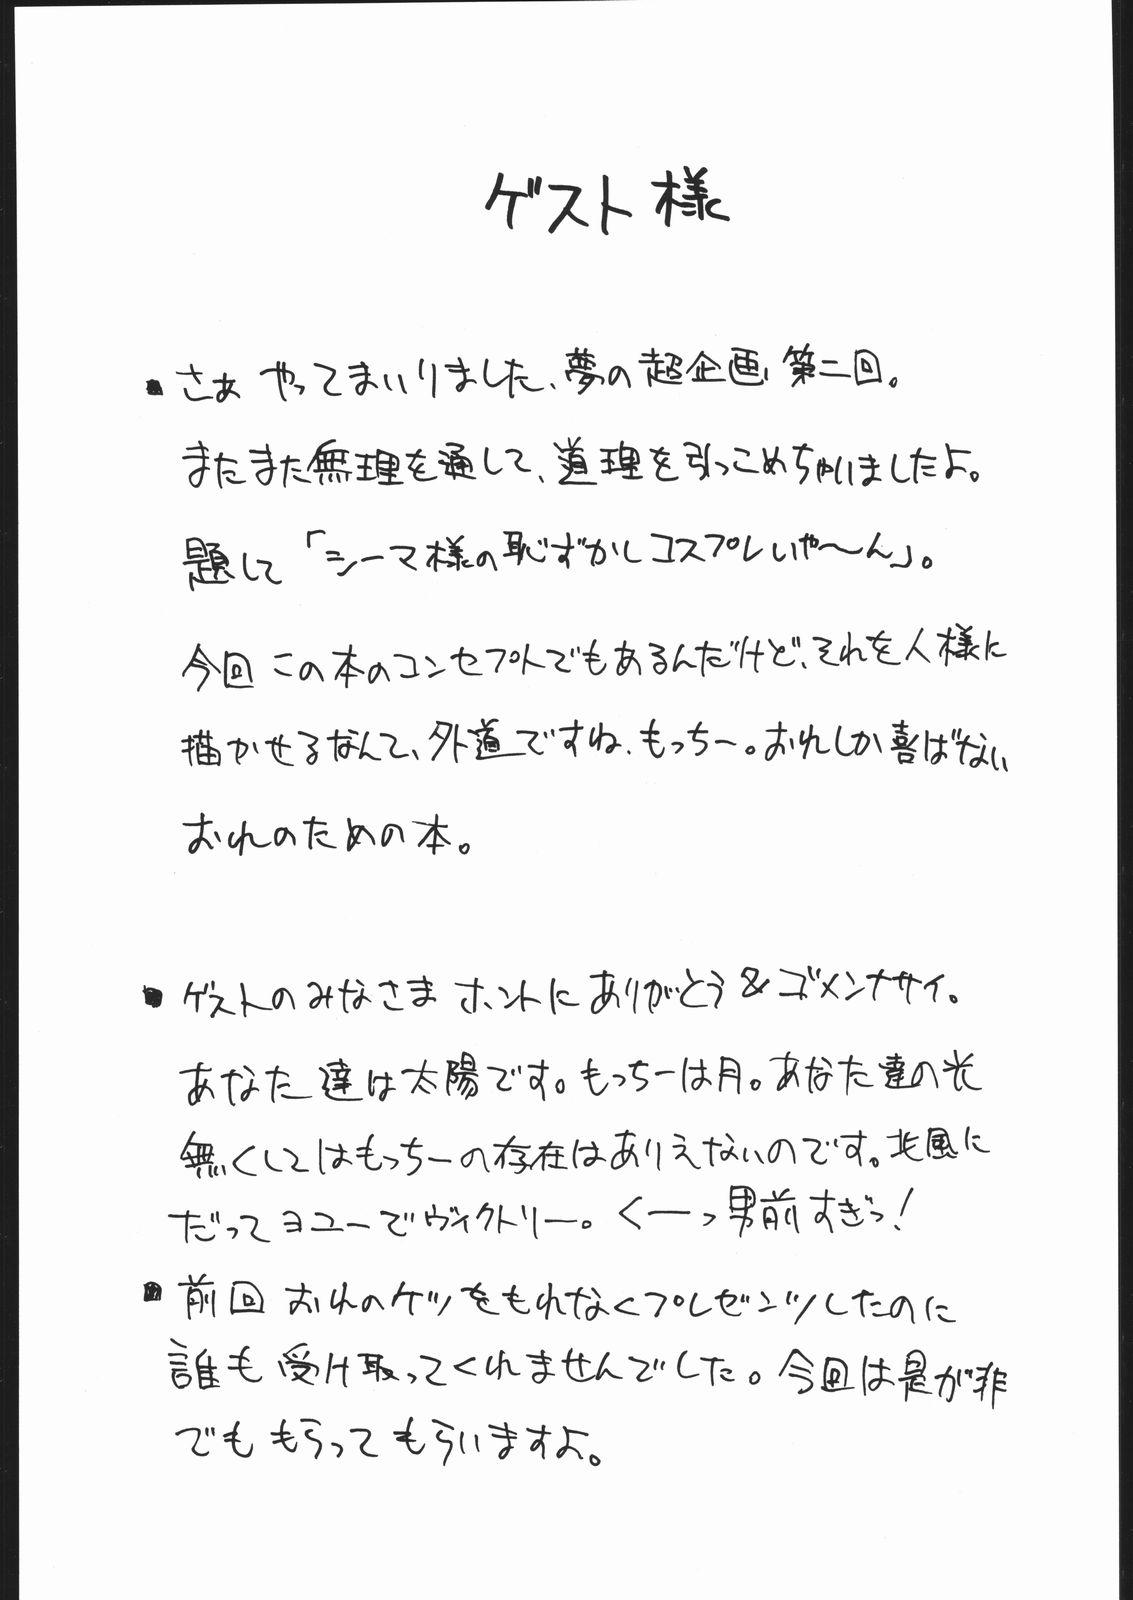 ゲスト様
■さぁ やってまいりました、夢の超企画 第二回。
またまた無理を通して、道理を引っこめちゃいましたよ。
題して「シーマ様の恥ずかしコスプレいや〜ん」。
今回 この本のコンセプトでもあるんだけど、それを人様に
描かせるなんて、外道ですね、もっちー。おれしか喜ばない
おれのための本。
■ゲストのみなさま ホントにありがとう&ゴメンナサイ。
あなた達は太陽です。もっちーは月。あなた達の光
無くしてはもっちーの存在はありえないのです。北風に
だってヨユーでヴィクトリー。くーっ男前すぎっ!
■前回 おれのケツをもれなくプレゼンツしたのに
誰も受け取ってくれませんでした。今回は是が非
でも もらって もらいますよ。